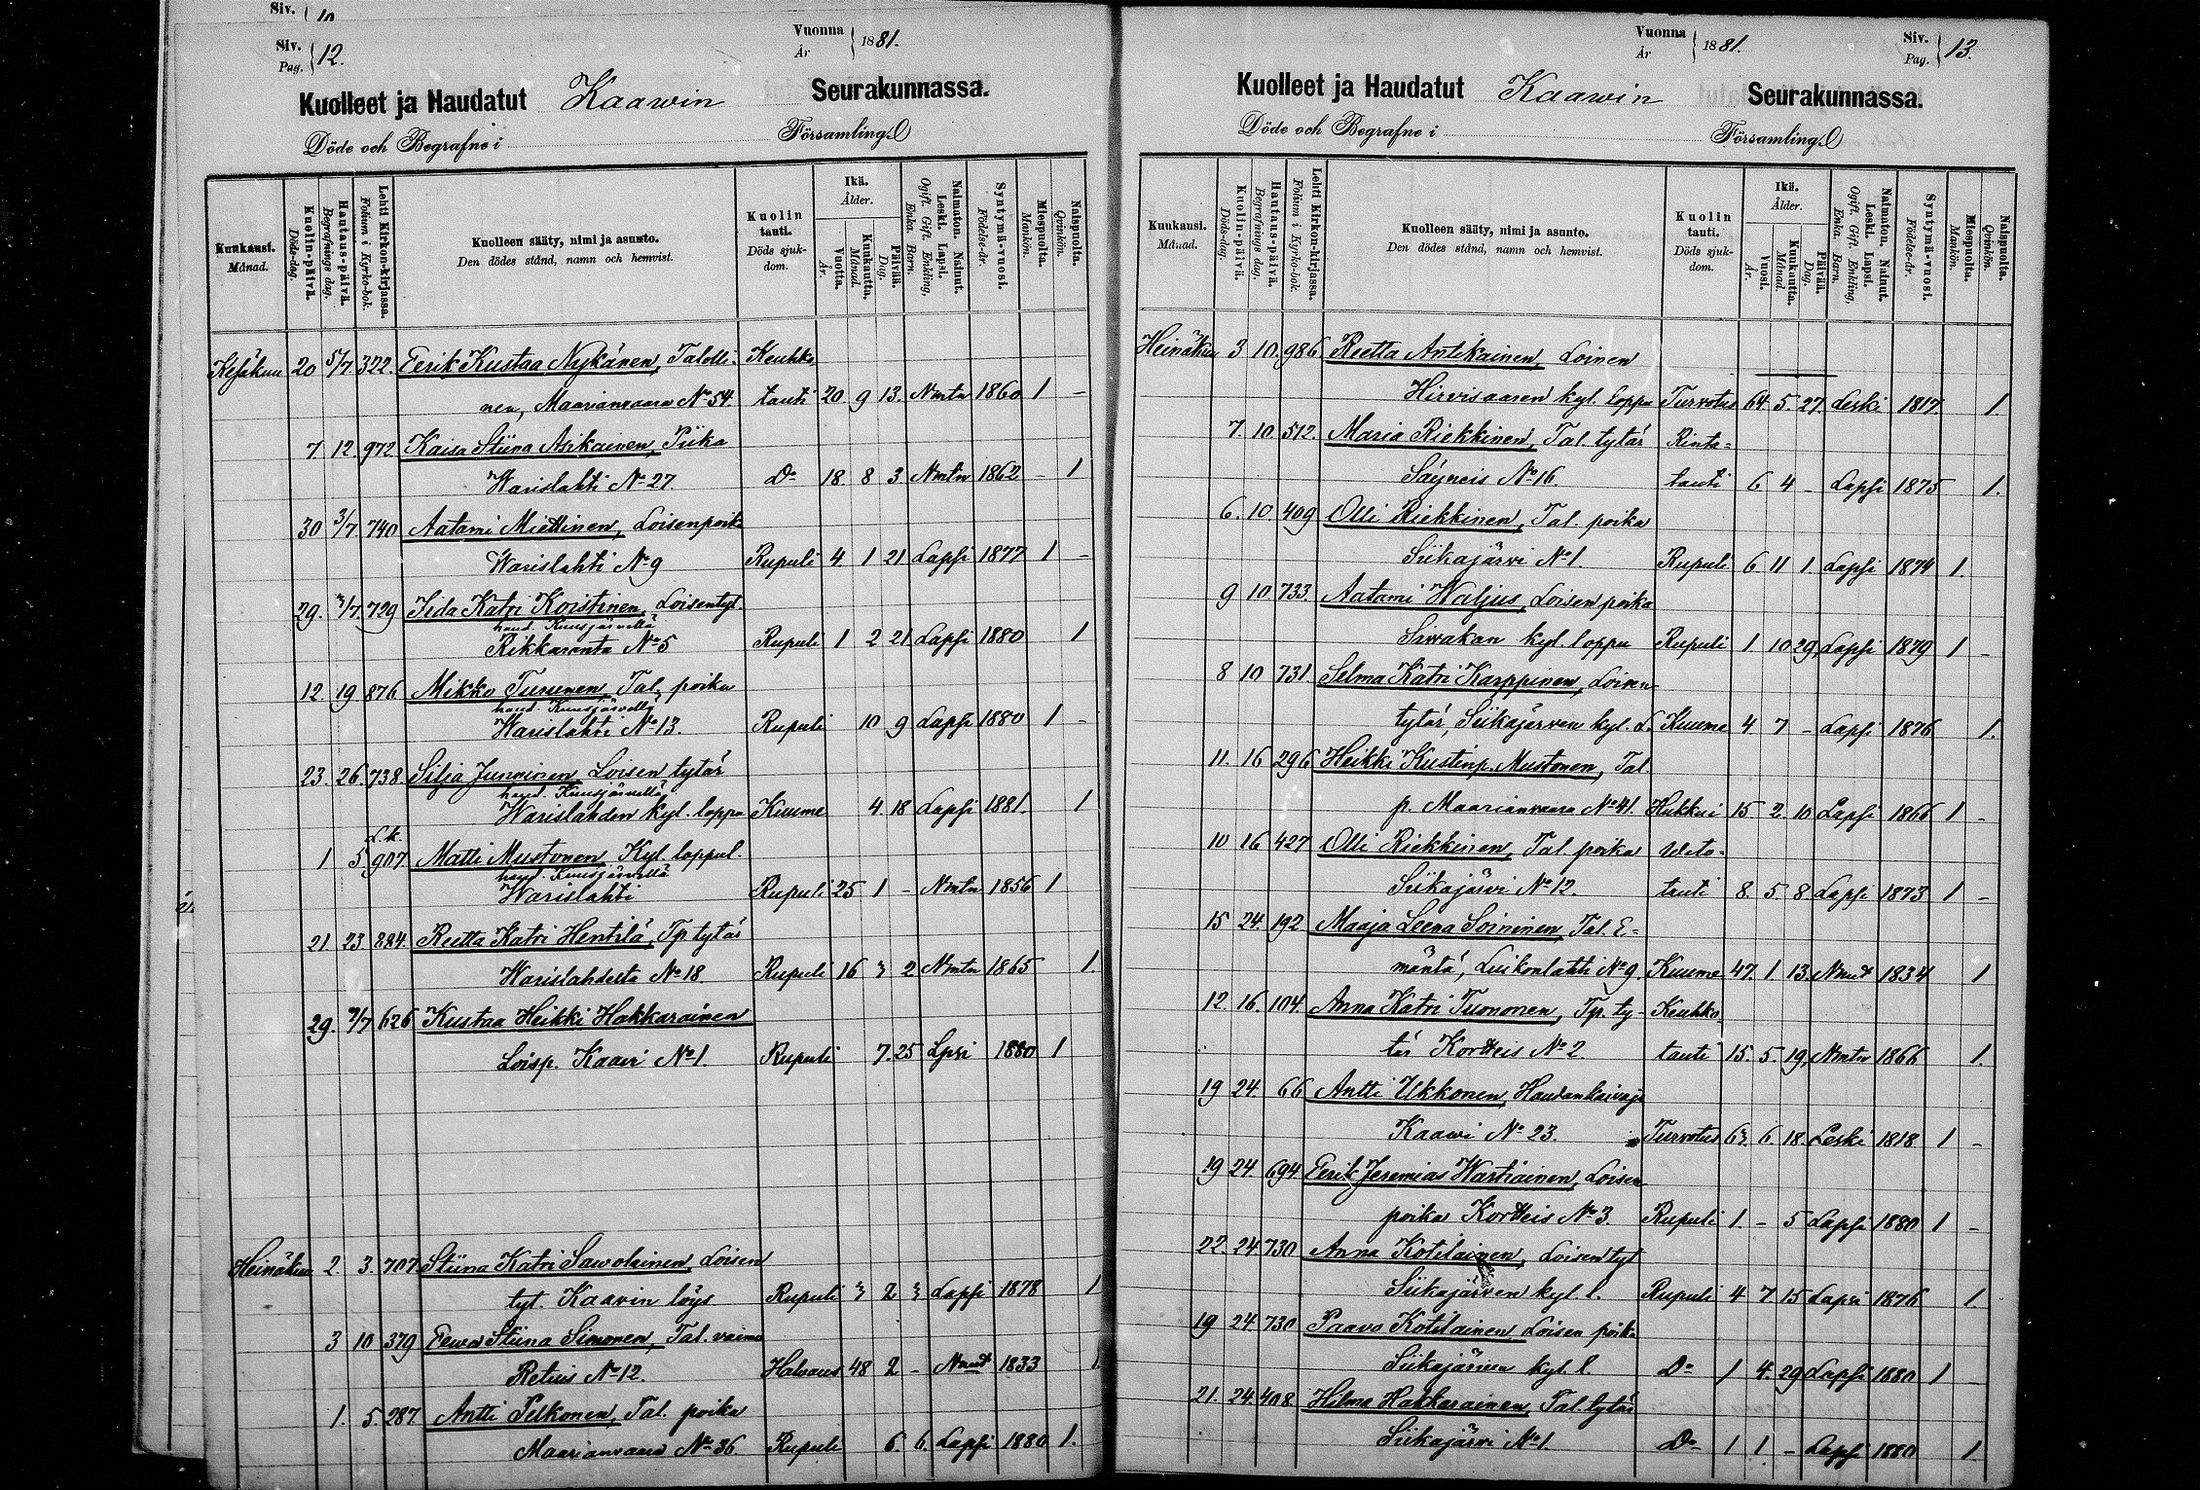 Siv. 10
Siv. 12.
Pag.
Vuonna 1881.
År
Kuolleet ja Haudatut Kaawin Seurakunnassa.
Döde och Begrafne i Församling
Kuukausi. Månad.
Kuolin-päivä. Döds-dag.
Hautaus-päivä. Begrafnings dag.
Lehti Kirkon-kirjassa. Folium i Kyrko-bok.
Kuolleen sääty, nimi ja asunto.
Den dödes stånd, namn och hemvist.
Kuolin tauti. Döds sjukdom.
Ikä. Ålder.
Vuotta. År.
Kuukautta. Månad.
Päivää. Dag.
Naimaton. Nainut. Leski. Lapsi.
Ogift. Gift. Enkling, Enka. Barn.
Syntymä-vuosi. Födelse-år.
Miespuolta. Mankön.
Naispuolta. Qvinkön.
Kesäkuu 20 5/7 322. Eerik Kustaa Nykänen, Talolli- Keuhko
nen, Maarianvaara No 54. tauti 20 9 13. Nmtn 1860 1 -
7 12 972 Kaisa Stiina Asikainen, Piika
Warislahti No 27. Do 18. 8 3 Nmtn 1862 - 1
30 3/7 740 Aatami Miettinen, Loisenpoika
Warislahti No 9 Rupuli 4. 1 21 Lapsi 1877 1 -
29. 3/7. 729 Iida Katri Koistinen, Loisentyt.
haud. Kuusjärvellä
Rikkaranta No 5 Rupuli 1 2 21 Lapsi 1880 1
12 19 876 Mikko Turunen, Tal. poika
haud. Kuusjärvellä
Warislahti No 13. Rupuli 10 9 Lapsi 1880 1 -
23. 26. 738. Silja Junninen Loisen tytär
haud. Kuusjärvellä
Warislahden kyl. loppu Kuume 4. 18 Lapsi 1881. 1
L.k.
1 5 907 Matti Mustonen, Kyl. loppul.
haud. Kuusjärvellä
Warislahti Rupuli 25 1 - Nmtn 1856 1
21. 23 884. Reetta Katri Hentilä, Tp. tytär
Warislahdelta No 18. Rupuli 16 3 2 Nmtn 1865 1.
29. 7/7 626 Kustaa Heikki Hakkarainen
Loisp. Kaavi No 1. Rupuli 7. 25 Lpsi 1880 1
Heinäkuu 2. 3. 707 Stiina Katri Sawolainen, Loisen
tyt. Kaavin löys. Rupuli 3 2 3 Lapsi 1878 1
3 10 379 Eewa Stiina Simonen, Tal. vaimo
Retus No 12. Halvaus 48 2 - Nnut 1833 1
1. 5 287. Antti Pelkonen, Tal. poika
Maarianvaara No 36 Rupuli 6. 6. Lapsi 1880 1.
Vuonna 1881.
År
Siv. 13.
Pag.
Kuolleet ja Haudatut Kaawin Seurakunnassa.
Döde och Begrafne i Församling
Kuukausi. Månad.
Kuolin-päivä. Döds-dag.
Hautaus-päivä. Begrafnings dag.
Lehti Kirkon-kirjassa. Folium i Kyrko-bok.
Kuolleen sääty, nimi ja asunto.
Den dödes stånd, namn och hemvist.
Kuolin tauti. Döds sjukdom.
Ikä. Ålder.
Vuosi. År.
Kuukautta. Månad.
Päivää. Dag.
Naimaton. Nainut. Leski. Lapsi.
Ogift. Gift. Enkling, Enka. Barn.
Syntymä-vuosi. Födelse-år.
Miespuolta. Mankön.
Naispuolta. Qvinkön.
Heinäkuu 3 10. 986 Reetta Antikainen, Loinen
Hirvisaaren kyl. loppu Turvotus 64 5. 27. Leski 1817. 1.
7. 10. 512. Maria Riekkinen, Tal. tytär Rinta-
Säyneis No 16. tauti 6 4 - Lapsi 1875 1.
6. 10. 409 Olli Riekkinen, Tal. poika
Siikajärvi No 1. Rupuli 6 11 1. Lapsi 1874 1.
9 10 733. Aatami Waljus, Loisen poika
Siwakan kyl. loppu Rupuli 1 10 29 Lapsi 1879 1 -
8 10 731. Selma Katri Karppinen, Loisen
tytär, Siikajärven kyl. l. Kuume 4 7 - Lapsi 1876 1.
11. 16 296 Heikki Kustinp. Mustonen, Tal.
p. Maarianvaara No 41. Hukkui 15 2 10 Lapsi 1866 1 -
10 16 427 Olli Riekkinen, Tal. poika Weto-
Siikajärvi No 12. tauti 8. 5. 8 Lapsi 1873 1 -
15 24. 192. Maaja Leena Soininen, Tal. E-
mäntä, Luikonlahti No 9. Kuume 47. 1 13. Nnut 1834 1
12. 16. 104. Anna Katri Tuononen, Tp. ty- Keuhko
tär Kortteis No 2. tauti 15. 5. 19, Nmtn 1866 1.
19 24. 66 Antti Ukkonen, Haudankaivaja
Kaawi No 23. Turvotus 63. 6 18. Leski 1818 1 -
19 24. 694. Eerik Jeremias Wartiainen, Loisen
poika Kortteis No 3. Rupuli 1. - 5 Lapsi 1880 1 -
22. 24 730 Anna Kotilainen, Loisen tyt
Siikajärven kyl. l. Rupuli 4 7 15 Lapsi 1876 1.
19 24 730 Paavo Kotilainen Loisen poika
Siikajärven kyl. l. Do 1 4. 29 Lapsi 1880 1
21. 24. 408. Hilma Hakkarainen, Tal. tytär
Siikajärvi No 1. Do 1 1 - Lapsi 1880 1.